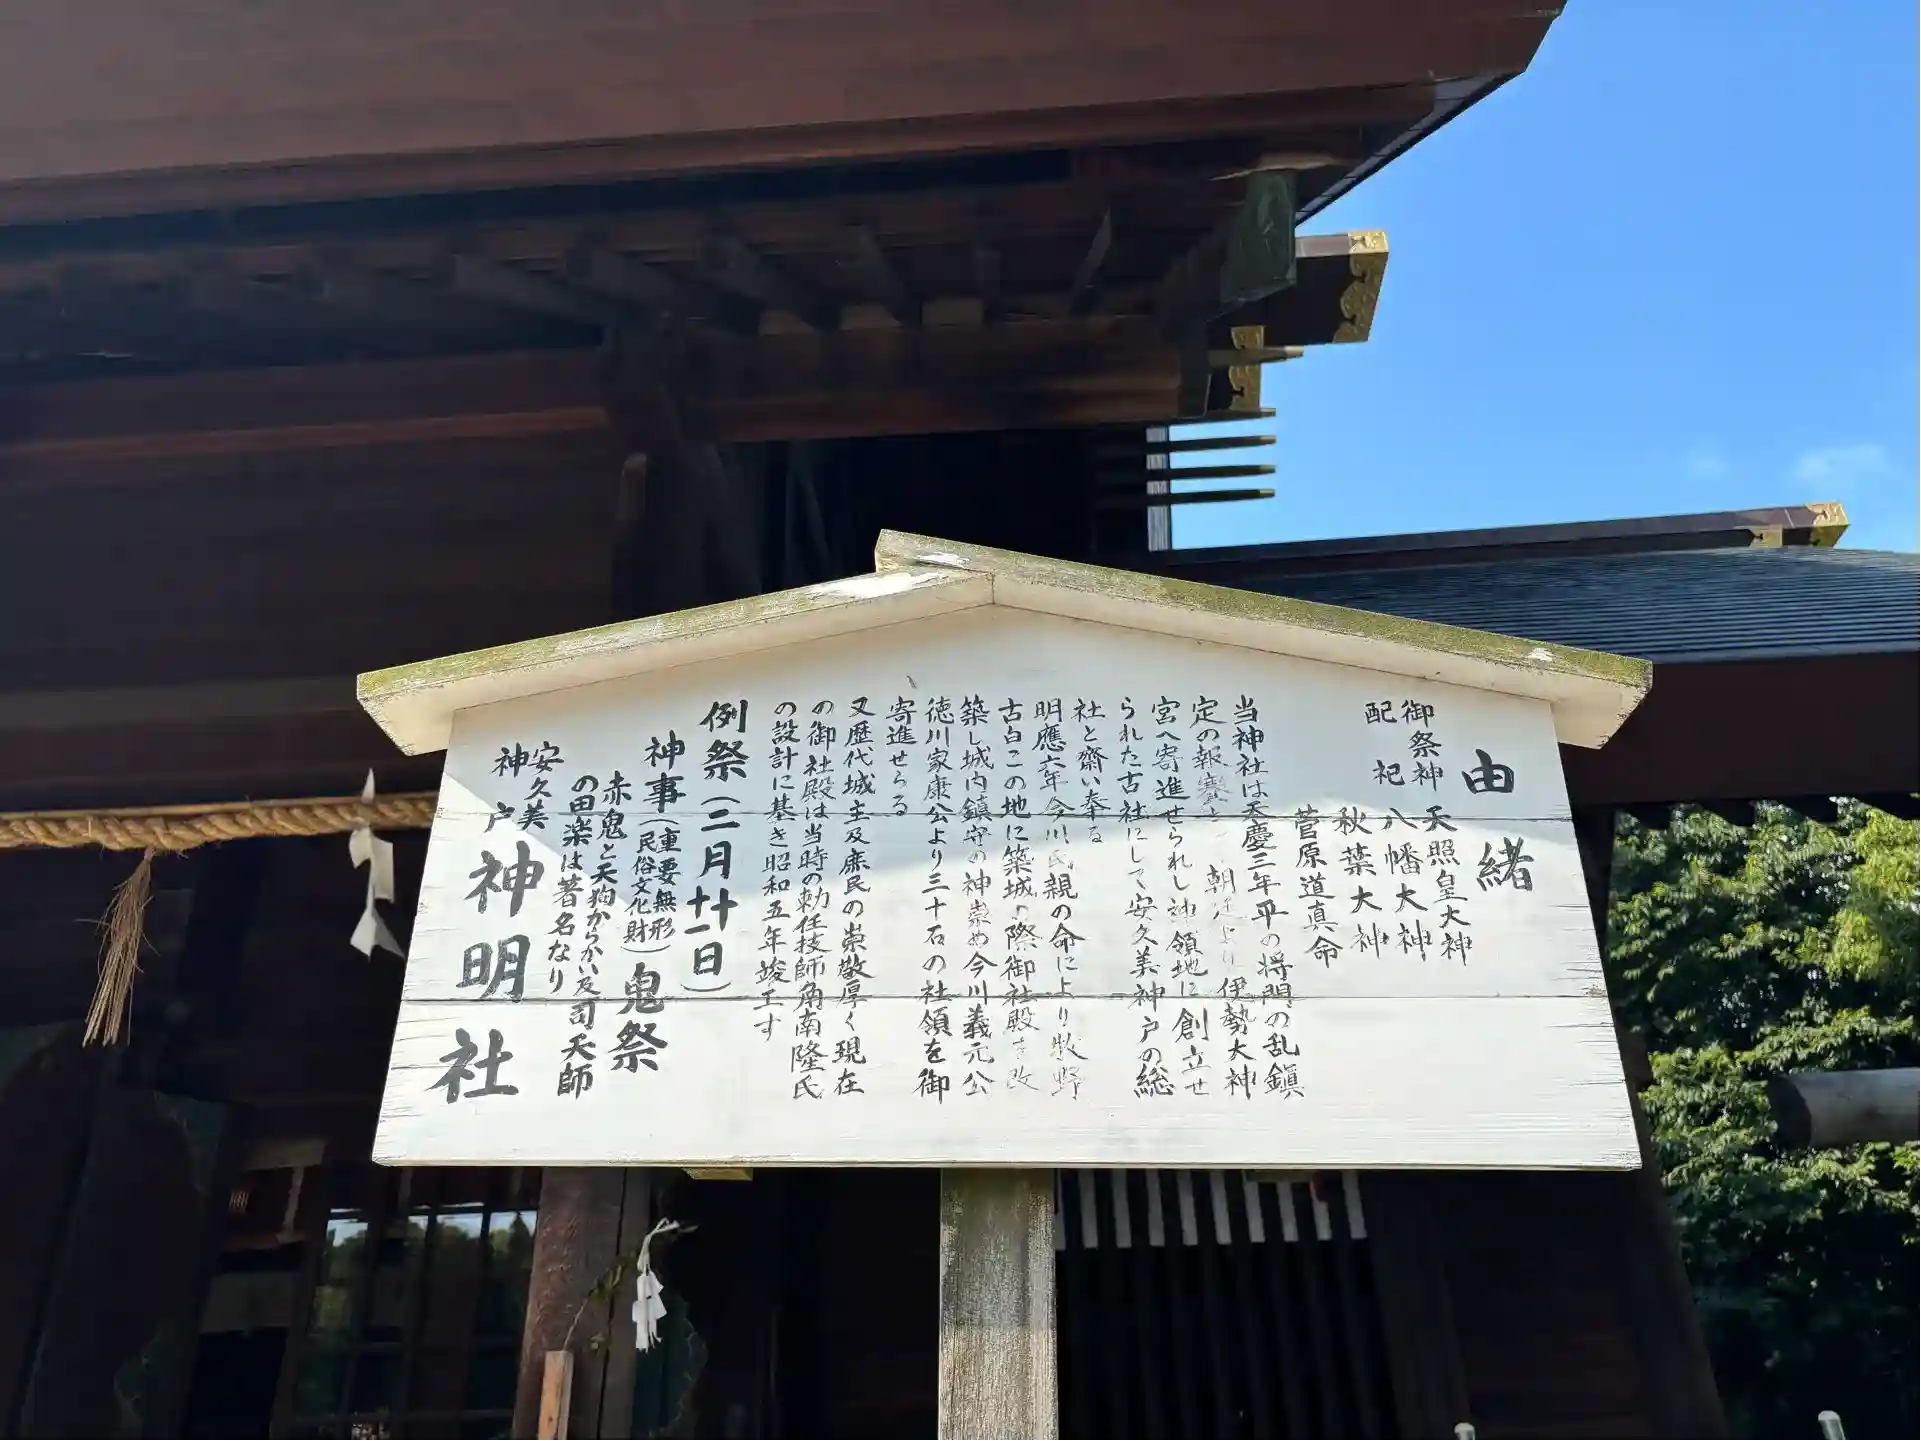 由緒
御祭神 天照皇大神
配祀 八幡大神
秋葉大神
菅原道真命
当神社は天慶三年平の将門の乱鎮
定の報賽として朝廷より伊勢大神
宮へ寄進せられし神領地に創立せ
られた古社にして安久美神戸の総
社と齋い奉る
明應六年今川氏親の命により牧野
古白この地に築城の際御社殿を改
築し城内鎮守の神崇め今川義元公
徳川家康公より三十石の社領を御
寄進せらる
又歴代城主及庶民の崇敬厚く現在
の御社殿は当時の勅任技師角南隆氏
の設計に基き昭和五年竣工す
例祭（二月十一日）
神事（重要無形民俗文化財）鬼祭
赤鬼と天狗からかい及司天師
の田楽は著名なり
安久美神戸神明社